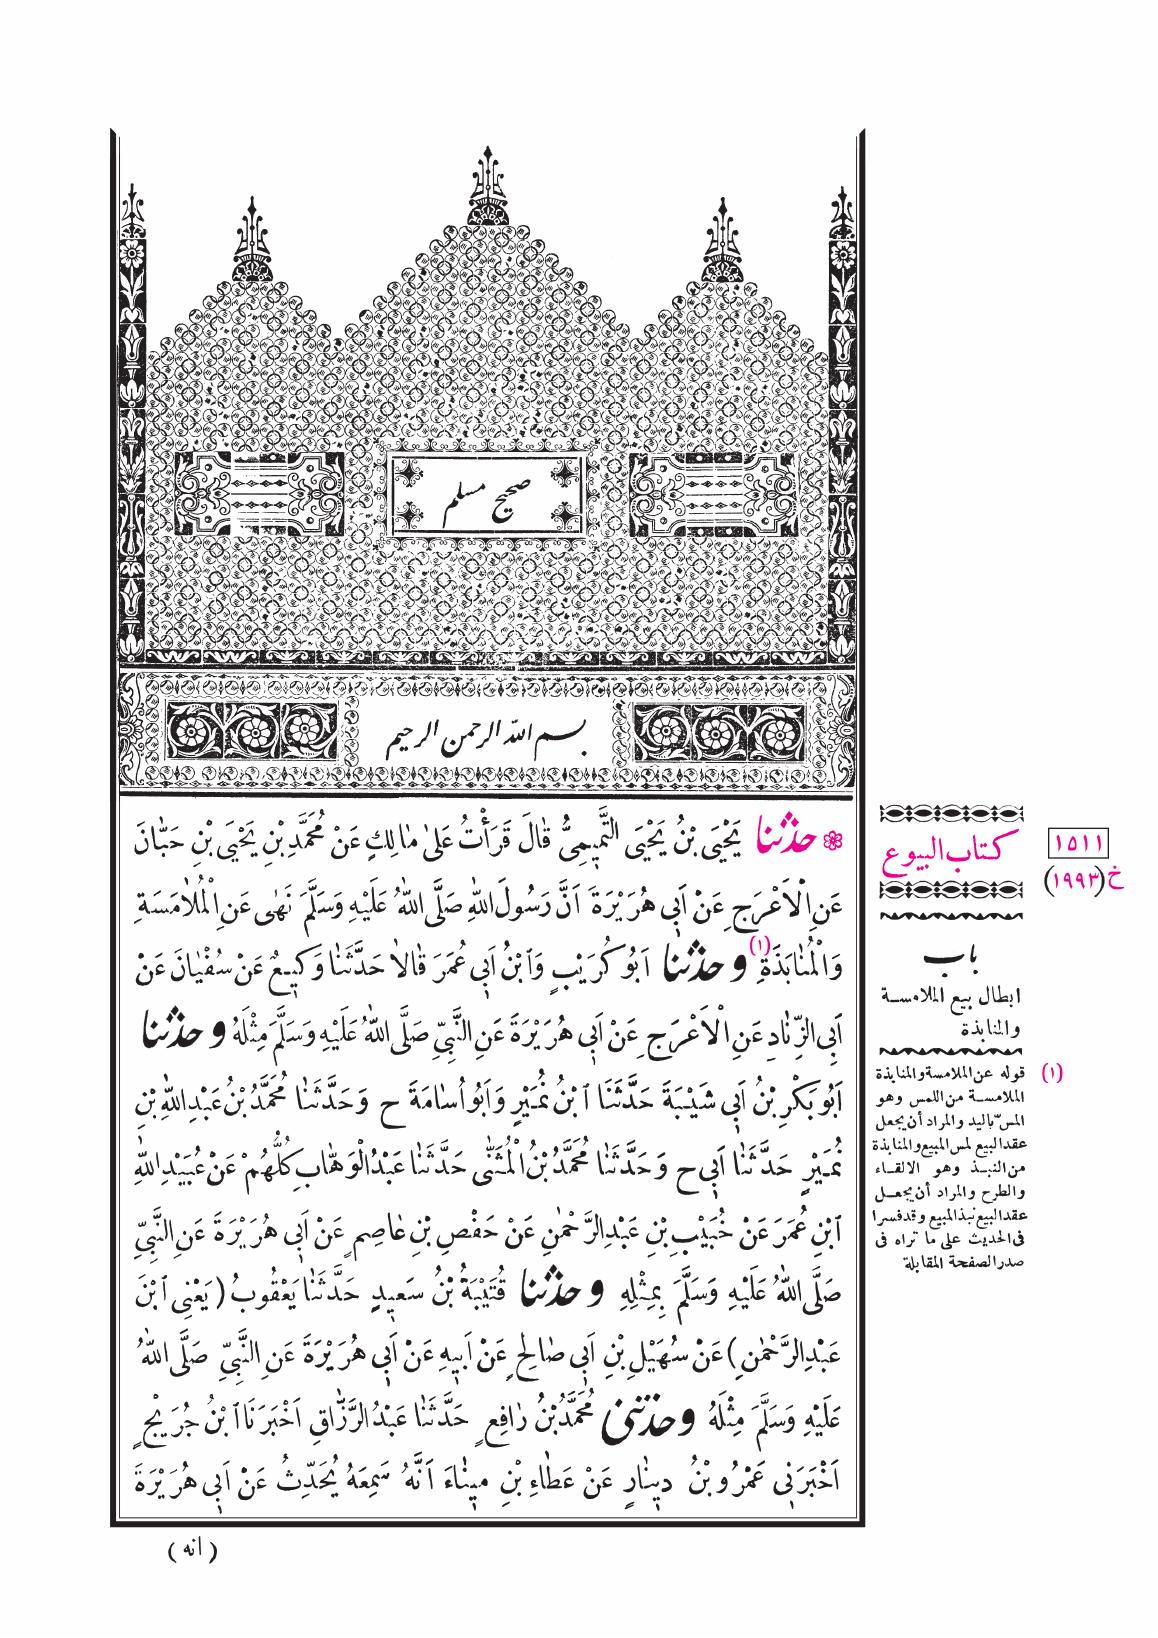 صحيح مسلم
بسم الله الرحمن الرحيم
❁ حدثنا يَحْيَى بْنُ يَحْيَى التَّمِيمِىُّ قَالَ قَرَأْتُ عَلىٰ مَالِكٍ عَنْ مُحَمَّدِ بْنِ يَحْيَى بْنِ حَبَّانَ
عَنِ الْاَعْرَجِ عَنْ اَبِى هُرَيْرَةَ اَنَّ رَسُولَ اللهِ صَلَّى اللهُ عَلَيْهِ وَسَلَّمَ نَهٰى عَنِ الْمُلَامَسَةِ
وَالْمُنَابَذَةِ (١) و حدثنا اَبُو كُرَيْبٍ وَٱبْنُ اَبِى عُمَرَ قَالَا حَدَّثَنَا وَكِيعٌ عَنْ سُفْيَانَ عَنْ
اَبِى الزِّنَادِ عَنِ الْاَعْرَجِ عَنْ اَبِى هُرَيْرَةَ عَنِ النَّبِىِّ صَلَّى اللهُ عَلَيْهِ وَسَلَّمَ مِثْلَهُ و حدثنا
اَبُو بَكْرِ بْنُ اَبِى شَيْبَةَ حَدَّثَنَا ٱبْنُ نُمَيْرٍ وَاَبُو اُسَامَةَ ح وَحَدَّثَنَا مُحَمَّدُ بْنُ عَبْدِ اللهِ بْنِ
نُمَيْرٍ حَدَّثَنَا اَبِى ح وَحَدَّثَنَا مُحَمَّدُ بْنُ الْمُثَنّٰى حَدَّثَنَا عَبْدُ الْوَهَّابِ كُلُّهُمْ عَنْ عُبَيْدِ اللهِ
ٱبْنِ عُمَرَ عَنْ خُبَيْبِ بْنِ عَبْدِ الرَّحْمٰنِ عَنْ حَفْصِ بْنِ عَاصِمٍ عَنْ اَبِى هُرَيْرَةَ عَنِ النَّبِىِّ
صَلَّى اللهُ عَلَيْهِ وَسَلَّمَ بِمِثْلِهِ و حدثنا قُتَيْبَةُ بْنُ سَعِيدٍ حَدَّثَنَا يَعْقُوبُ (يَعْنِى ٱبْنَ
عَبْدِ الرَّحْمٰنِ) عَنْ سُهَيْلِ بْنِ اَبِى صَالِحٍ عَنْ اَبِيهِ عَنْ اَبِى هُرَيْرَةَ عَنِ النَّبِىِّ صَلَّى اللهُ
عَلَيْهِ وَسَلَّمَ مِثْلَهُ و حدثنى مُحَمَّدُ بْنُ رَافِعٍ حَدَّثَنَا عَبْدُ الرَّزَّاقِ اَخْبَرَنَا ٱبْنُ جُرَيْجٍ
اَخْبَرَنِى عَمْرُو بْنُ دِينَارٍ عَنْ عَطَاءِ بْنِ مِينَاءَ اَنَّهُ سَمِعَهُ يُحَدِّثُ عَنْ اَبِى هُرَيْرَةَ
(انه)
كتاب البيوع
١٥١١
خ (١٩٩٣)
باب
ابطال بيع الملامسة
والمنابذة
(١) قوله عن الملامسة والمنابذة
الملامسة من اللمس وهو
المسّ باليد والمراد أن يجعل
عقد البيع لمس المبيع والمنابذة
من النبذ وهو الالقاء
والطرح والمراد أن يجعل
عقد البيع نبذ المبيع وقد فسرا
فى الحديث على ما تراه فى
صدر الصفحة المقابلة